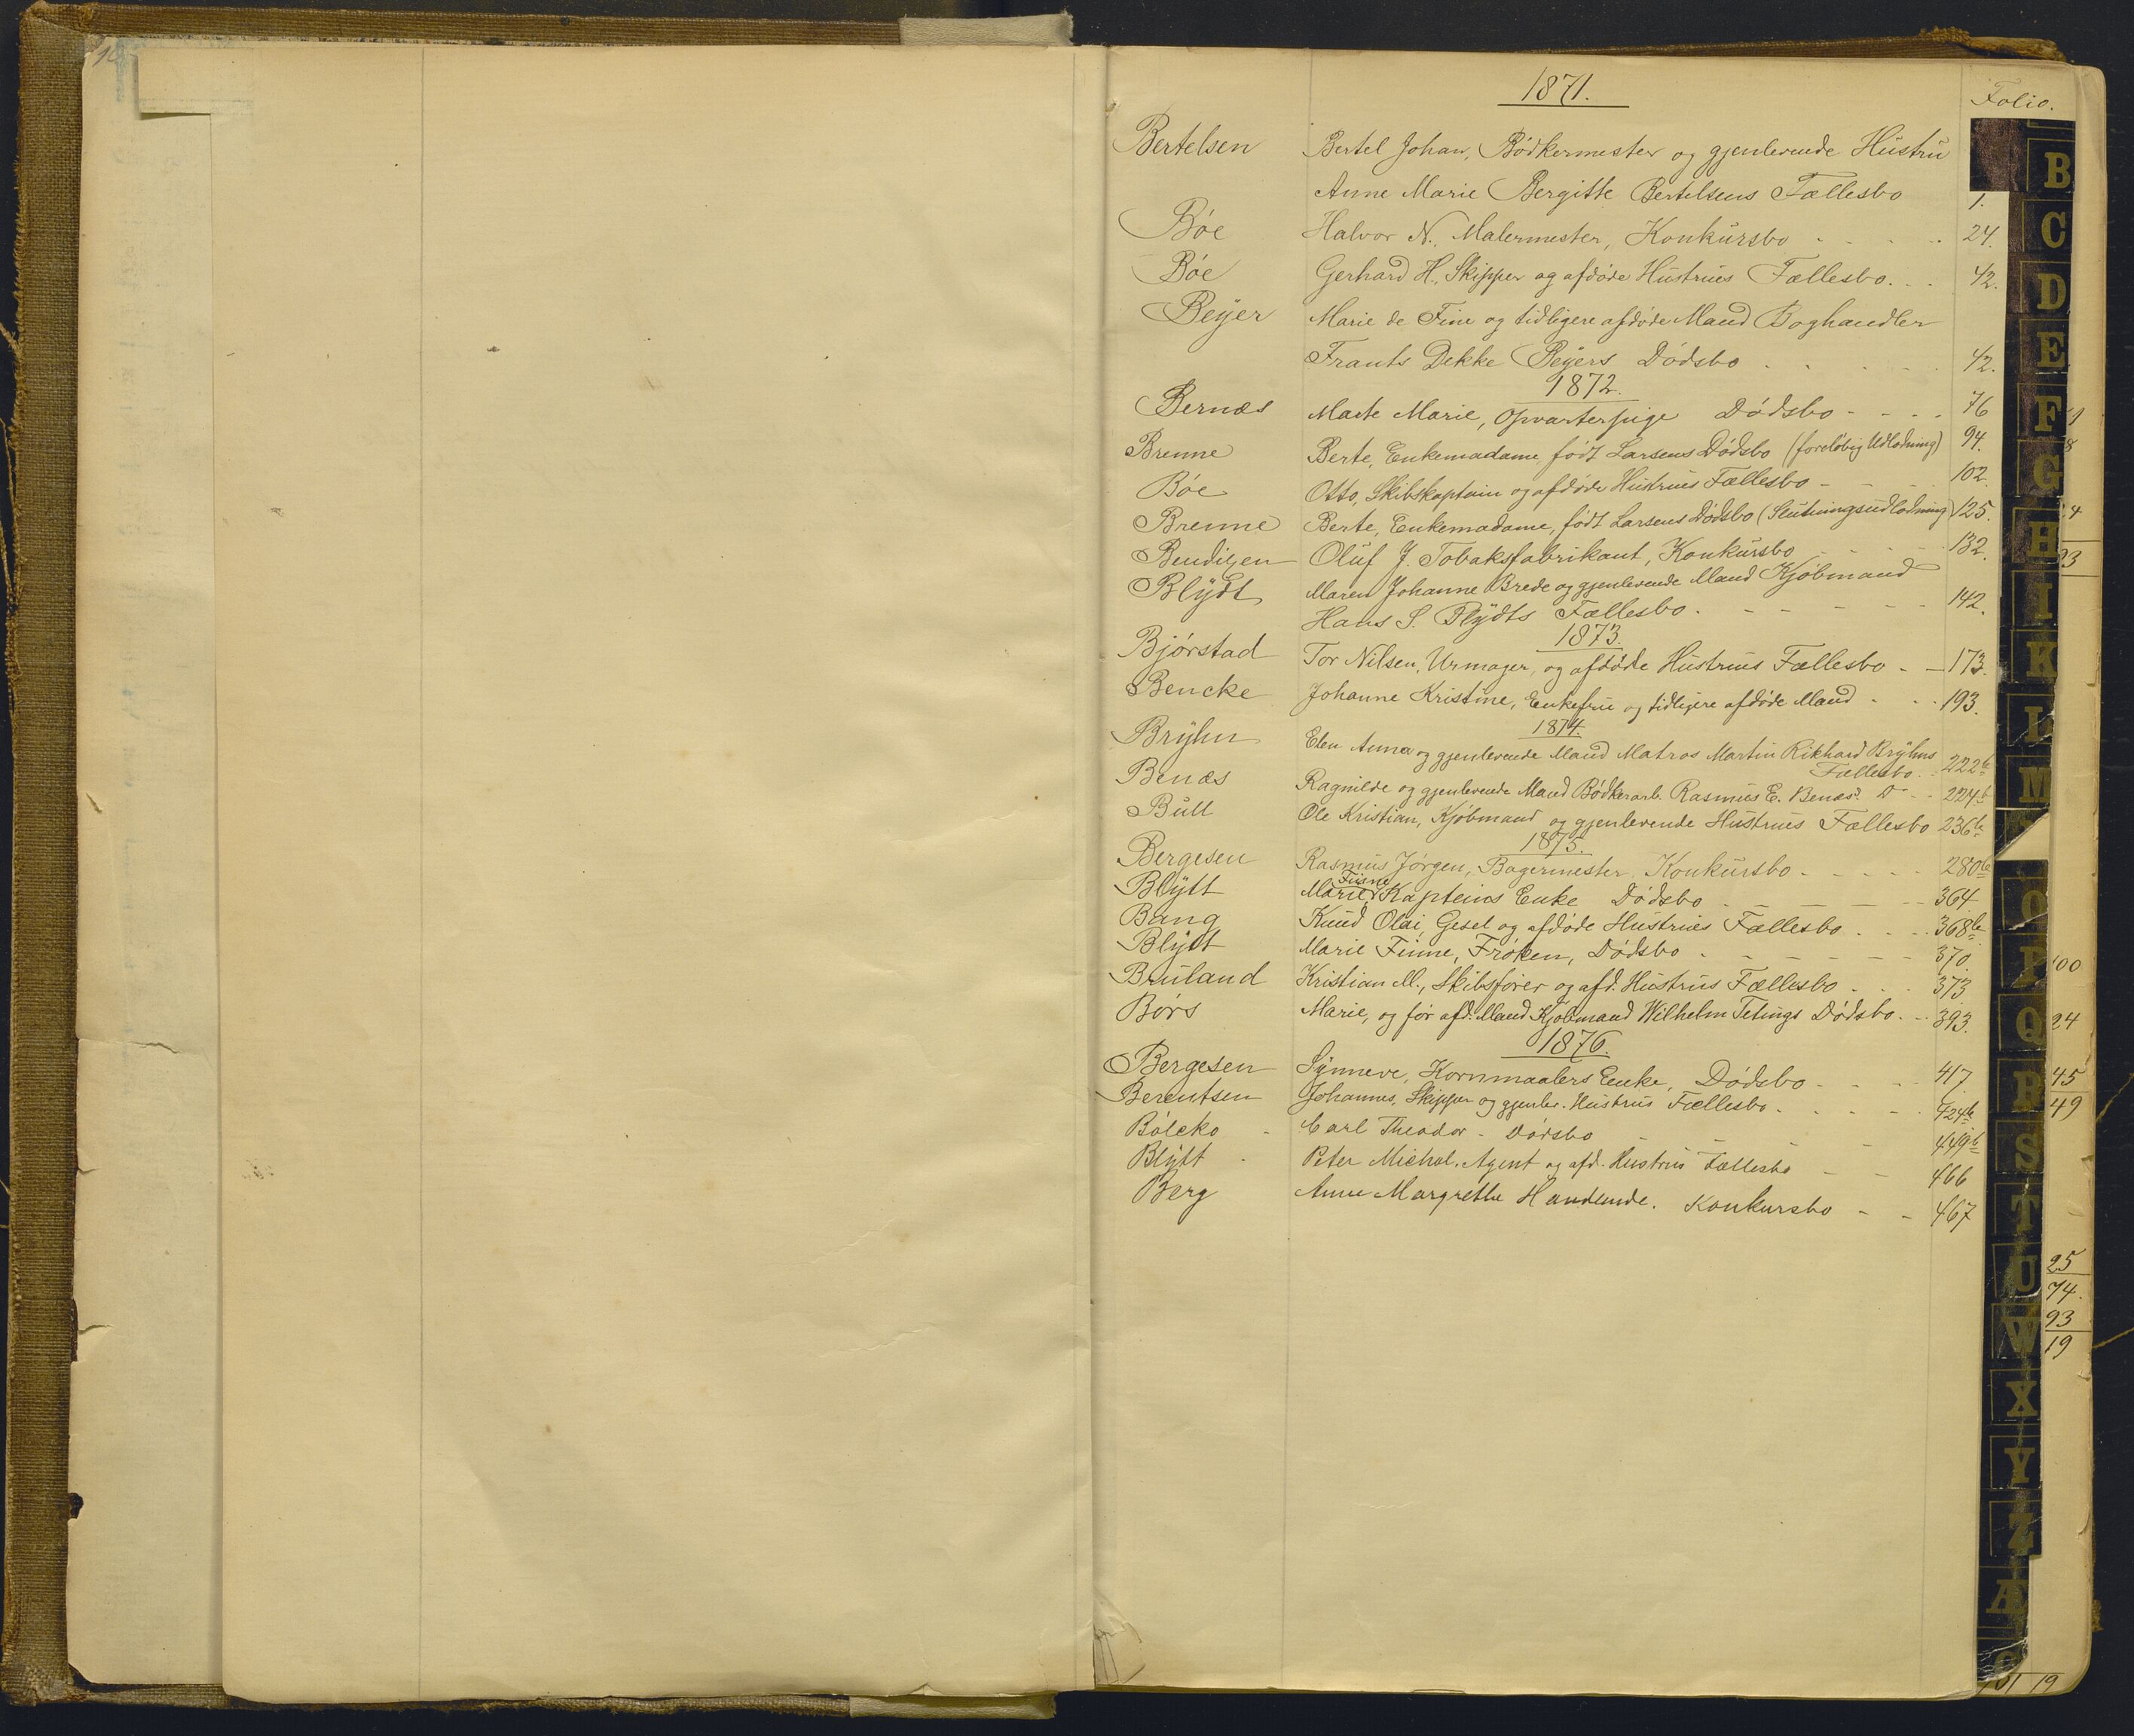 1871.
Folio.
Bertelsen Bertel Johan, Bödkermester og gjenlevende Hustru
Anne Marie Bergitte Bertelsens Fællesbo 1.
Böe Halvor N. Malermester, Konkursbo - - - - 24.
Böe Gerhard H. Skipper og afdöde Hustrues Fællesbo. - - 42.
Beyer Marie de Fine og tidligere afdöde Mand Boghandler
Frants Dekke Beyers Dödsbo - - - - 42.
1872.
Bernæs Marte Marie, Opvarterpige Dödsbo - - - - 76
Brenne Berte, Enkemadame, född Larsens Dödsbo (foreløbig Udlodning) 94.
Böe Otto, Skibskaptain og afdöde Hustrues Fællesbo - - - 102.
Brenne Berte, Enkemadame, född Larsens Dödsbo (Slutningsudlodning) 125.
Bendixen Oluf J. Tobaksfabrikant, Konkursbo - - - - 132.
Blydt Maren Johanne Brede og gjenlevende Mand Kjöbmand
Hans S. Blydts Fællesbo. - - - - - 142.
1873.
Bjórstad Tor Nilsen, Urmager, og afdöde Hustrues Fællesbo - - 173.
Bencke Johanne Kristine, Enkefrue og tidligere afdöde Mand - - - 193.
1874.
Bryhn Elen Anna og gjenlevende Mand Matros Martin Rikhard Bryhns
Fællesbo - 222b
Benæs Ragnilde og gjenlevende Mand Bödkerarb. Rasmus E. Benæs' Do - - 224b
Bull Ole Kristian, Kjöbmand og gjenlevende Hustrues Fællesbo 236b
1875.
Bergesen Rasmus Jörgen, Bagermester, Konkursbo - - - - - 280b
Finne
Blytt Marie, Kapteins Enke Dödsbo - - - - - 364
Bang Knud Olai, Gesel og afdöde Hustrues Fællesbo - - - 368b
Blytt Marie Finne, Fröken, Dödsbo - - - - - 370.
Bruland Kristian M., Skibsförer og afd. Hustrus Fællesbo - - - 373
Börs Marie, og för afd. Mand Kjöbmand Wilhelm Tetings Dödsbo. - - 393.
1876.
Bergesen Synneve, Kornmaalers Enke, Dödsbo - - - - 417
Berentsen Johannes, Skipper og gjenlev. Hustrus Fællesbo. - - - - 424b
Bölcko - Carl Theodor - Dödsbo - - - - 449b
Blytt - Peter Michal, Agent og afd. Hustrus Fællesbo - - 466
Berg Anne Margrethe Handlende. Konkursbo - - 467
B
C
D
E
F
G
H
I
K
L
M
O
P
Q
R
S
T
U
W
X
Y
Z
Æ
100
24
45
49
25
74.
93
19
19